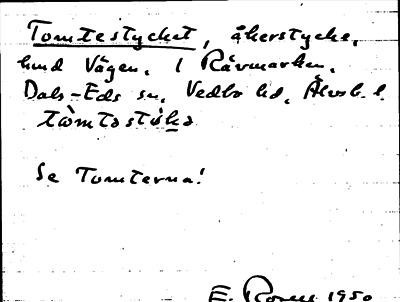 Tomtestycket, åkerstycke,
hmd Vägen. 1 Rävmarken.
Dals-Eds sn, Vedbo hd, Älvsb. l.
tòmtəstẁkə
Se Tomterna!
E. Rosell 1950